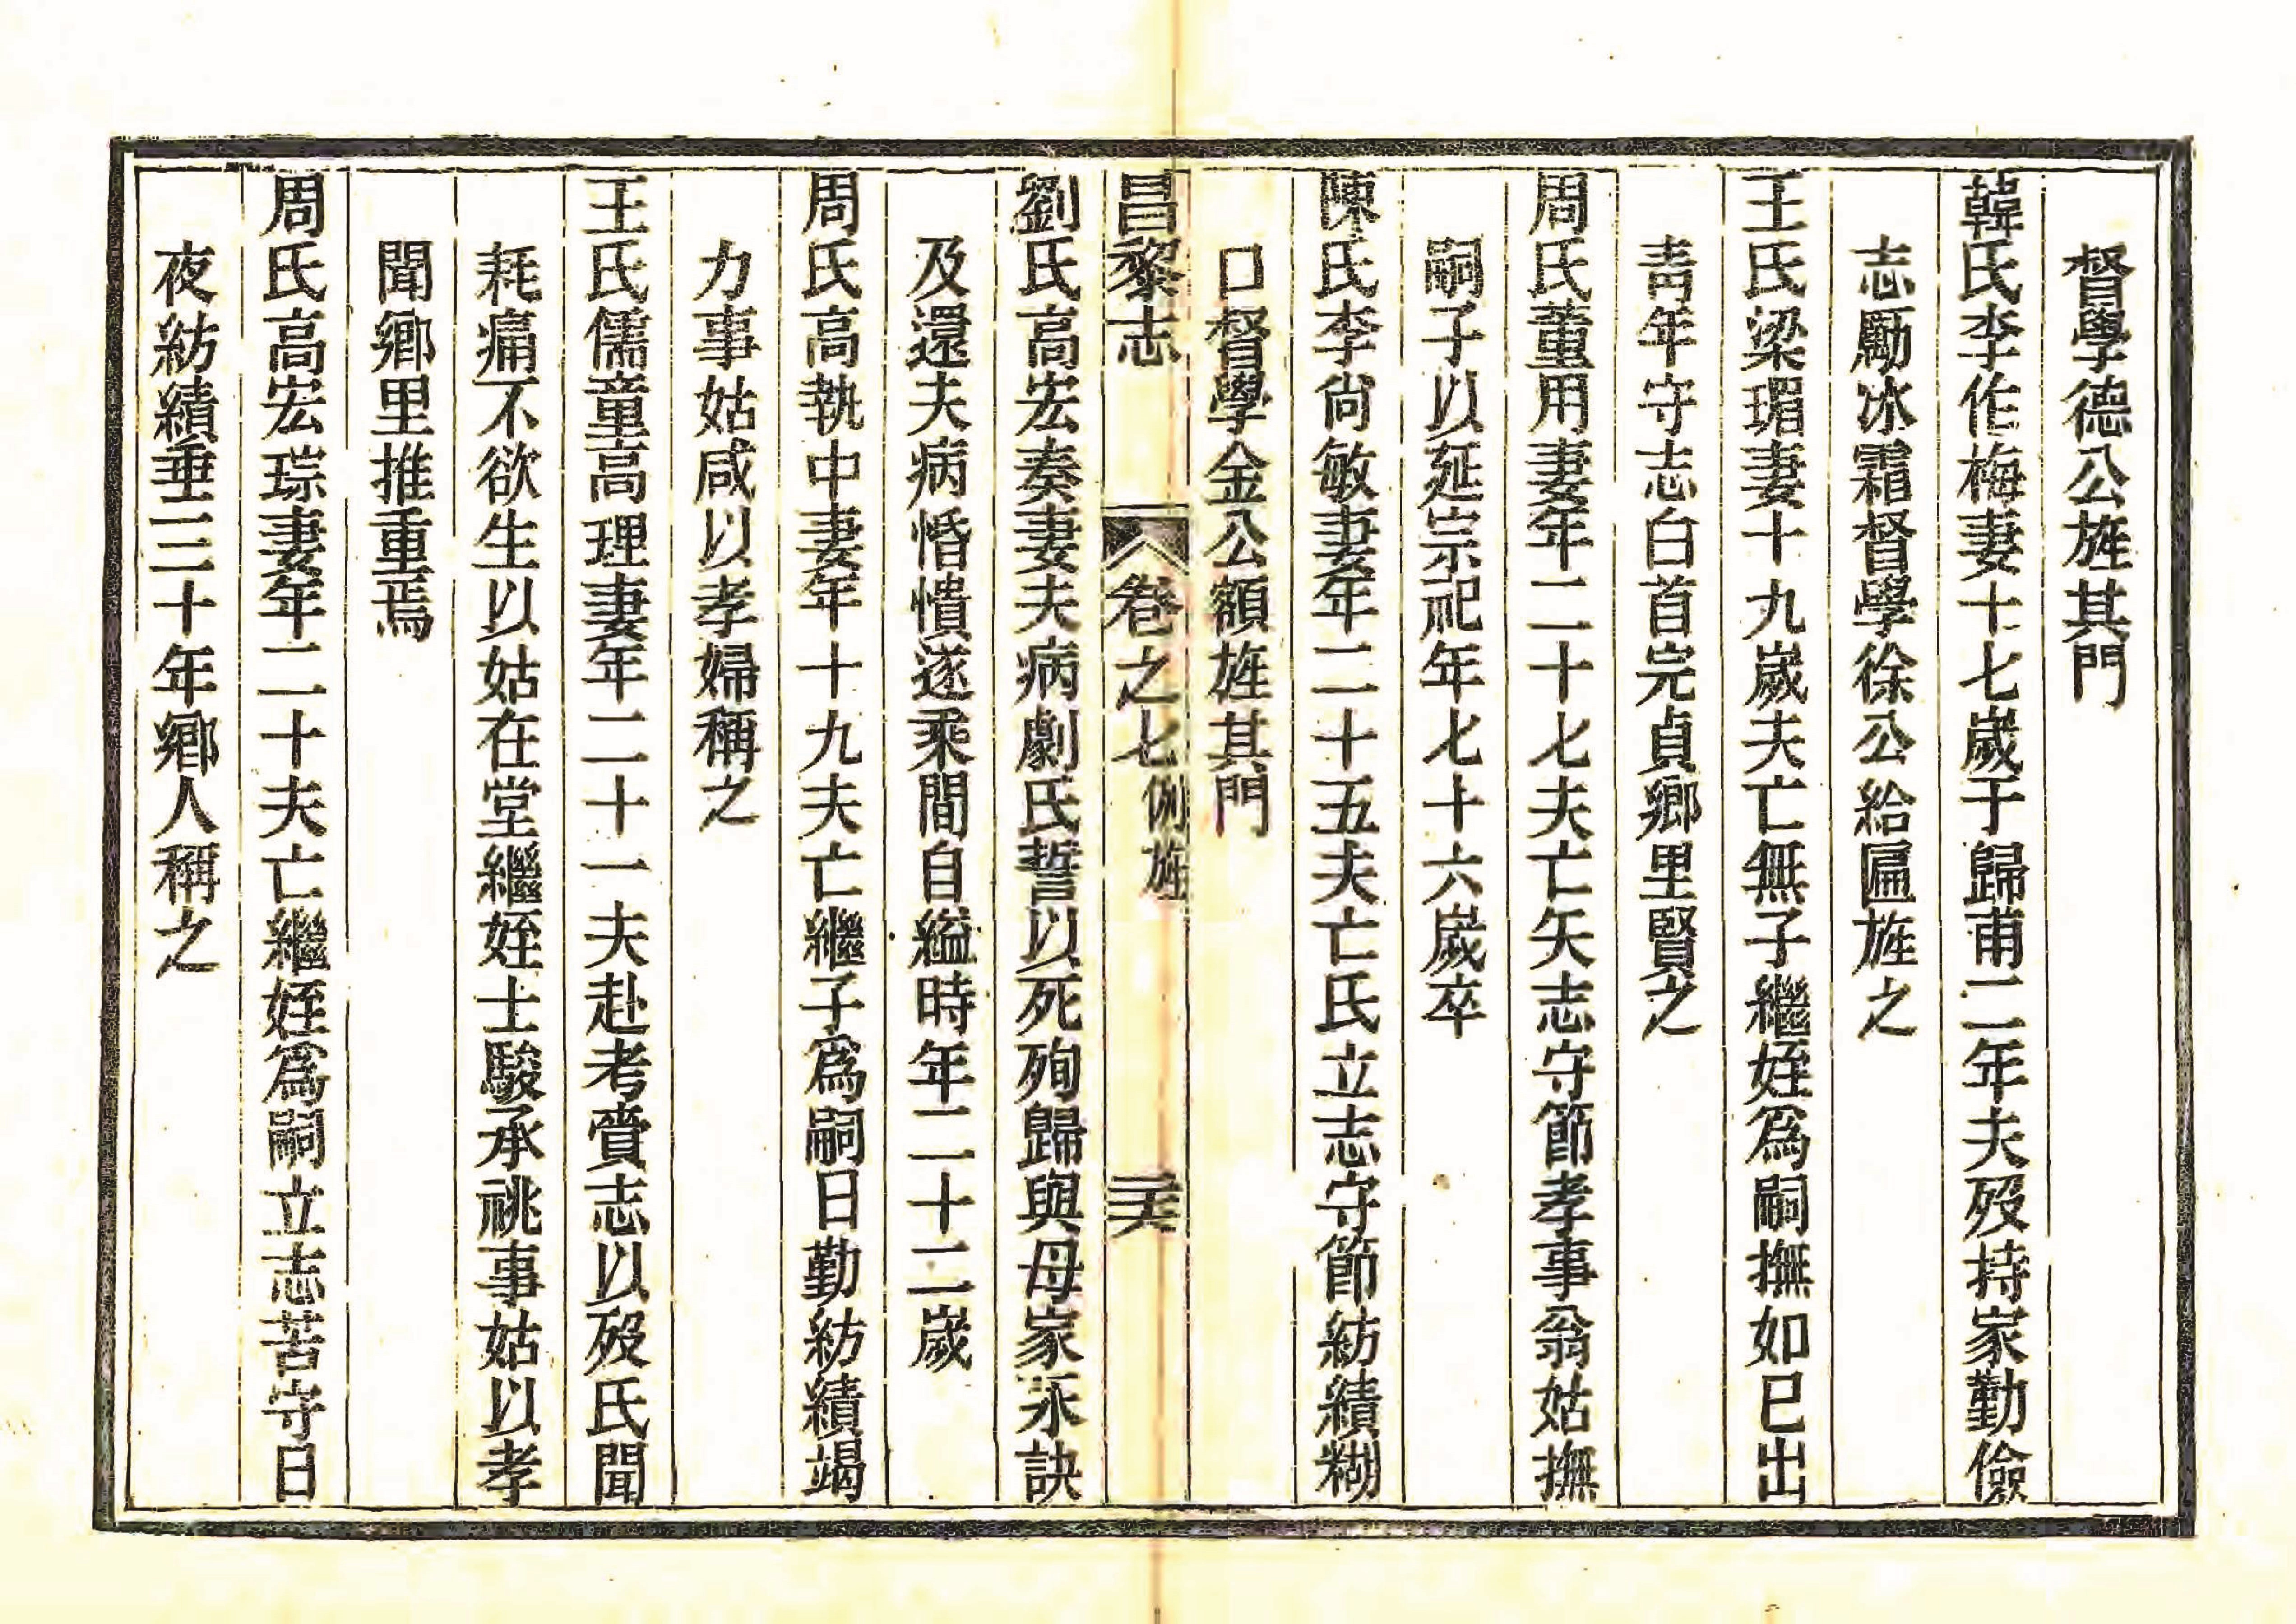 督學德公旌其門
韓氏李作梅妻十七歲于歸甫二年夫歿持家勤儉
志勵冰霜督學徐公給匾旌之
王氏梁瑂妻十九歲夫亡無子繼姪爲嗣撫如已出
靑年守志白首完貞鄉里賢之
周氏董用妻年二十七夫亡矢志守節孝事翁姑撫
嗣子以延宗祀年七十六歲卒
陳氏李尙敏妻年二十五夫亡氏立志守節紡績糊
口督學金公額旌其門
昌黎志 卷之七 例旌 三六
劉氏高宏奏妻夫病劇氏誓以死殉歸與母家永訣
及還夫病惛憒遂乘間自縊時年二十二歲
周氏高執中妻年十九夫亡繼子爲嗣日勤紡績竭
力事姑咸以孝婦稱之
王氏儒童高理妻年二十一夫赴考賫志以歿氏聞
耗痛不欲生以姑在堂繼姪士駿承祧事姑以孝
聞鄉里推重焉
周氏高宏琮妻年二十夫亡繼姪爲嗣立志苦守日
夜紡績垂三十年鄉人稱之